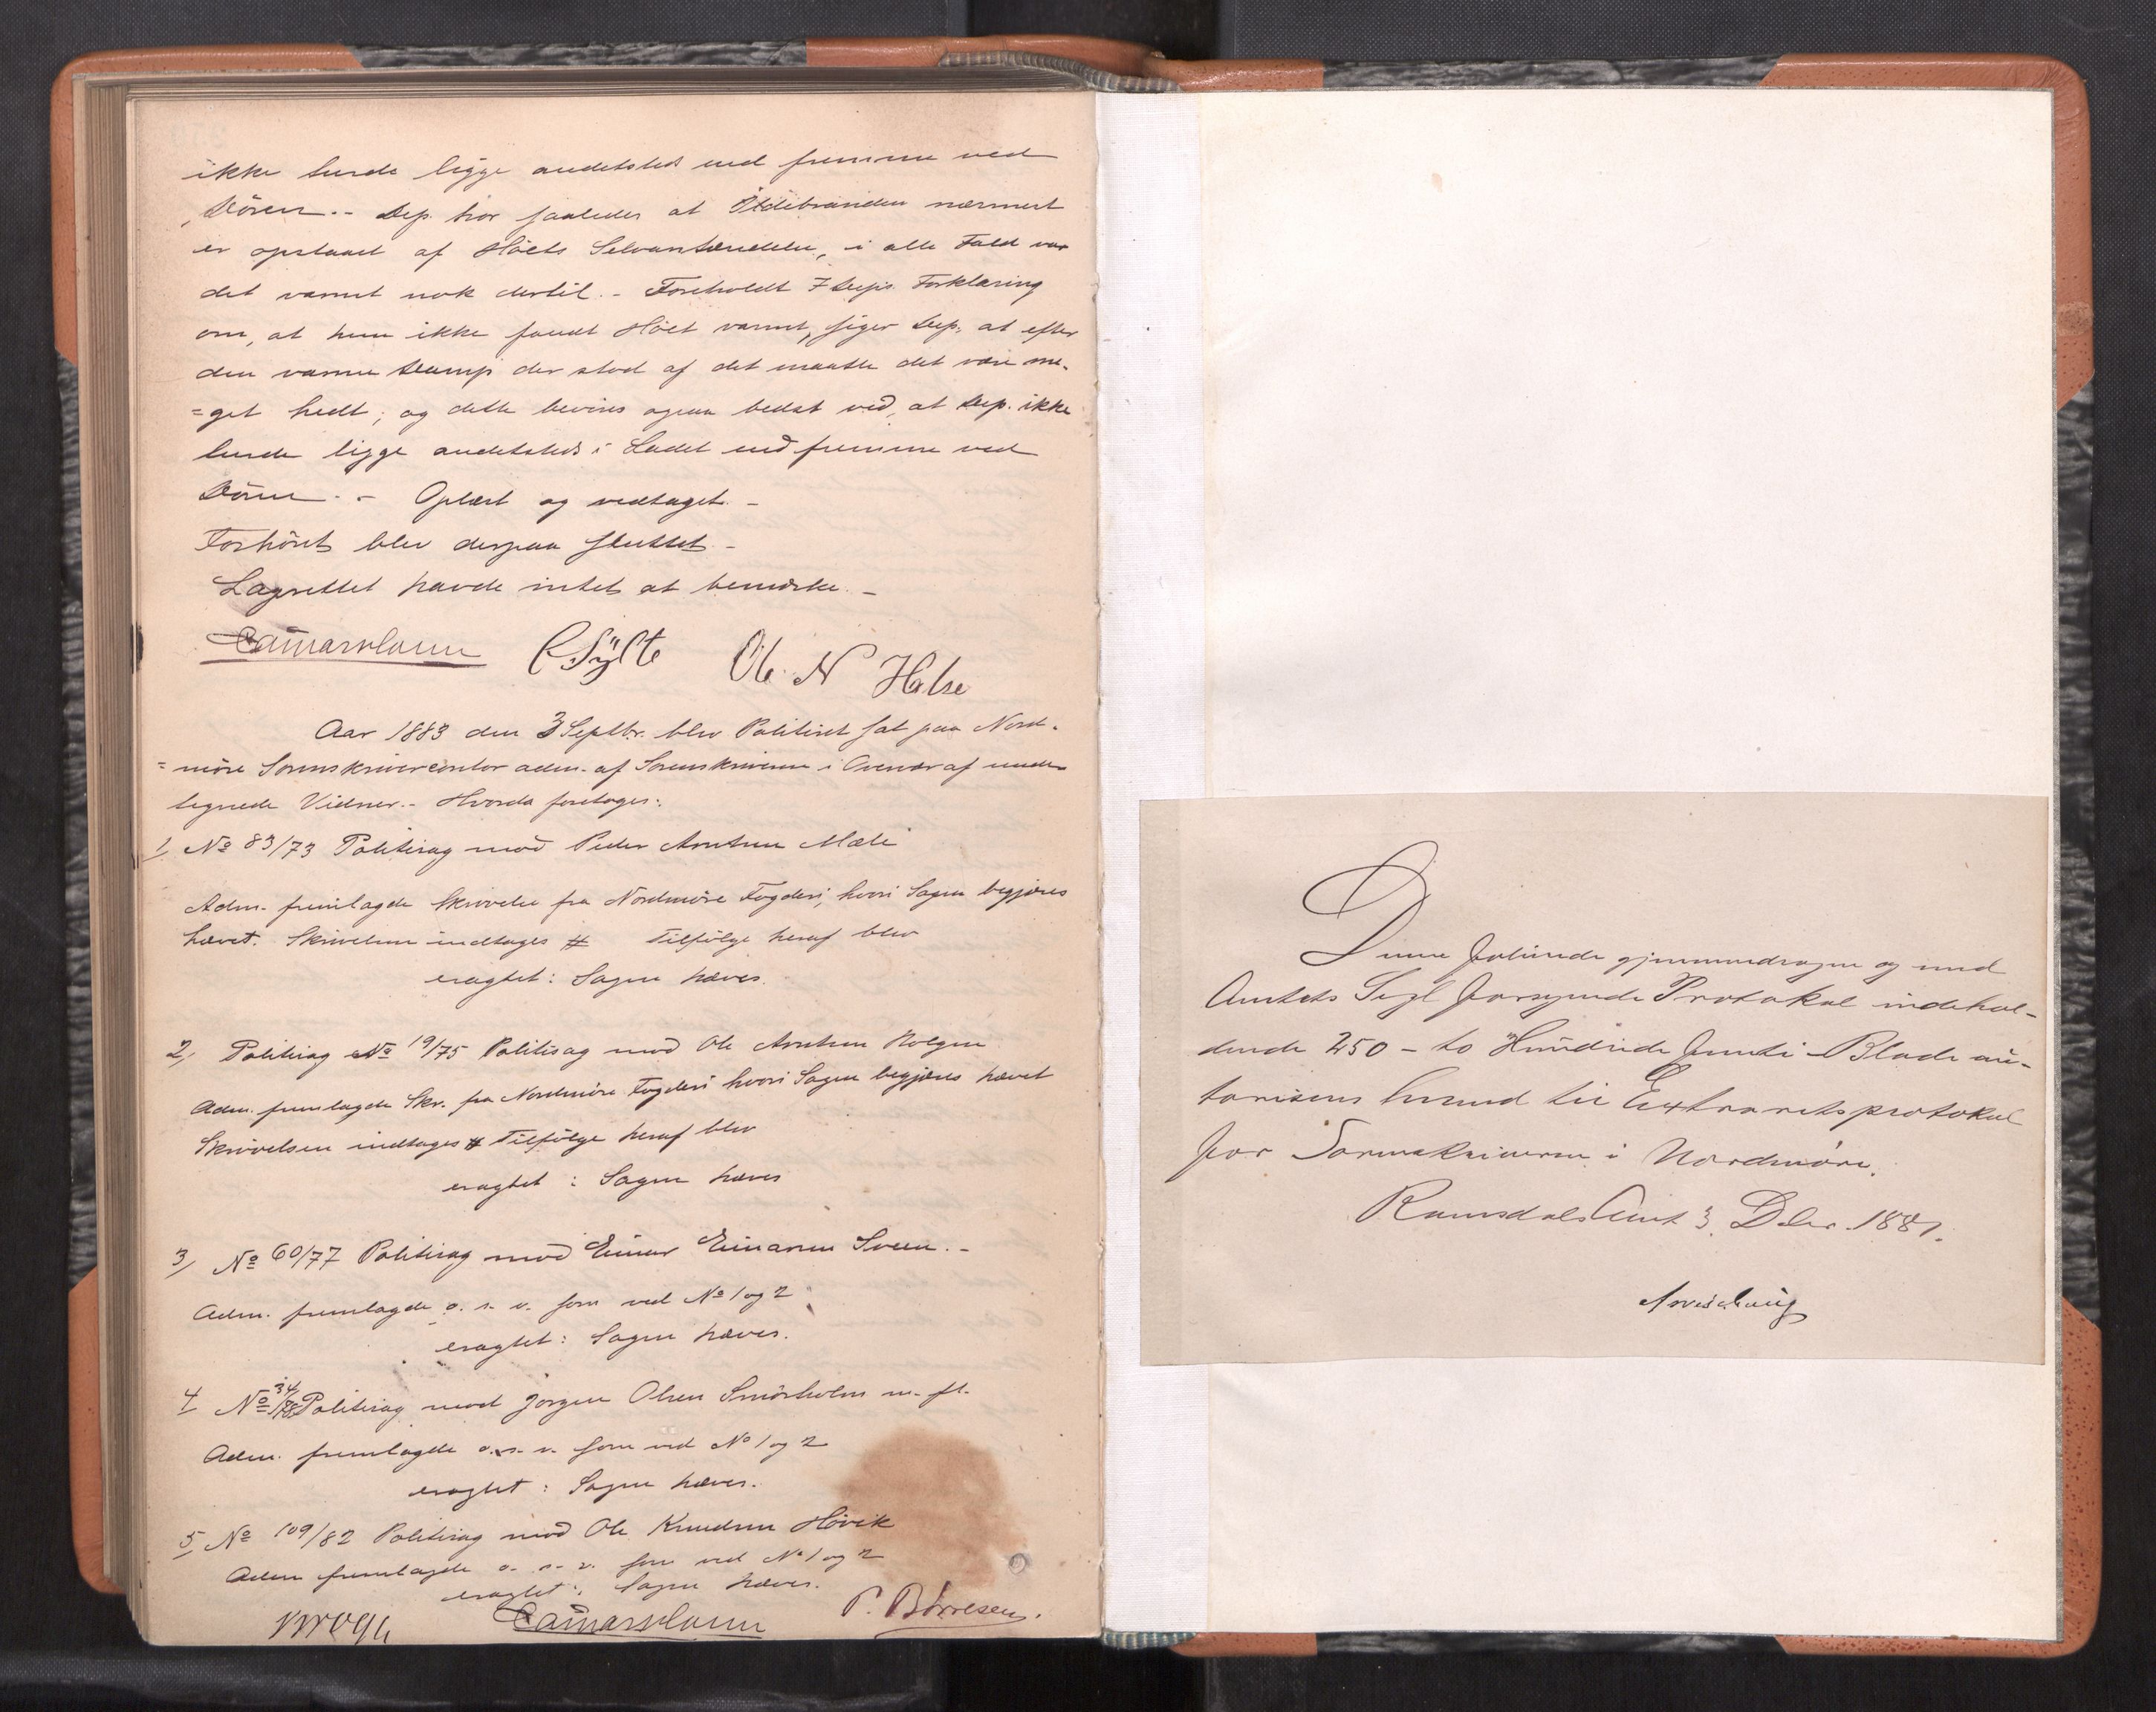 ikke turde ligge andetsteds end fremme ved
Dören. - Dep. tror saaledes at Ildebranden nærmest
er opstaaet af Höets Selvantændelse, i alle Fald var
det varmt nok dertil. - Foreholdt 7 Deps. Forklaring
om, at hun ikke fandt Höet varmt, siger Dep. at efter
den varme Damp der stod af det maatte det være me-
=get hedt; og dette bevises ogsaa bedst ved, at Dep. ikke
turde ligge andetsteds i Ladet end fremme ved
Dören. - Oplæst og vedtaget. -
Forhöret blev derpaa sluttet. -
Lagrettet havde intet at bemærke. -
C Sÿlte Ole N Halse
Aar 1883 den 3 Septbr. blev Politiret sat paa Nord-
=möre Sorenskrivercontor adm. af Sorenskriveren i Overvær af under
tegnede Vidner. - Hvorda foretoges:
1, No 83/73 Politisag mod Peder Arntsen Mæle
Adm. fremlagde Skrivelse fra Nordmöre Fogderi, hvori Sagen begjæres
hævet. Skrivelsen indtages # Tilfölge heraf blev
eragtet: Sagen hæves.
2, Politisag No 19/75 Politisag mod Ole Arntsen
Adm. fremlagde Skr. fra Nordmöre Fogderi hvori Sagen begjæres hævet
Skrivelsen indtages # Tilfölge heraf blev
eragtet: Sagen hæves
3, No 60/77 Politisag mod Einar Einarsen Sveen. -
Adm. fremlagde o. s. v. som ved No 1 og 2
eragtet: Sagen hæves.
4 No 34/78 Politisag mod Jörgen Olsen Smörholm m. fl.
Adm. fremlagde o. s. v. som ved No 1 og 2
eragtet: Sagen hæves.
5, No 109/82 Politisag mod Ole Knudsen Hövik
Adm fremlagde o. s. v. som ved No 1 og 2
eragtet: Sagen hæves.
P. Börresen.
Denne folierede gjennemdragne og med
Amtets Segl forsynede Protokol indehol-
dende 250 - to Hundrede femti - Blade au-
toriseres herved til Extraretsprotokol
for Sorenskriveren i Nordmöre.
Romsdals Amt 3. Dcbr. 1881.